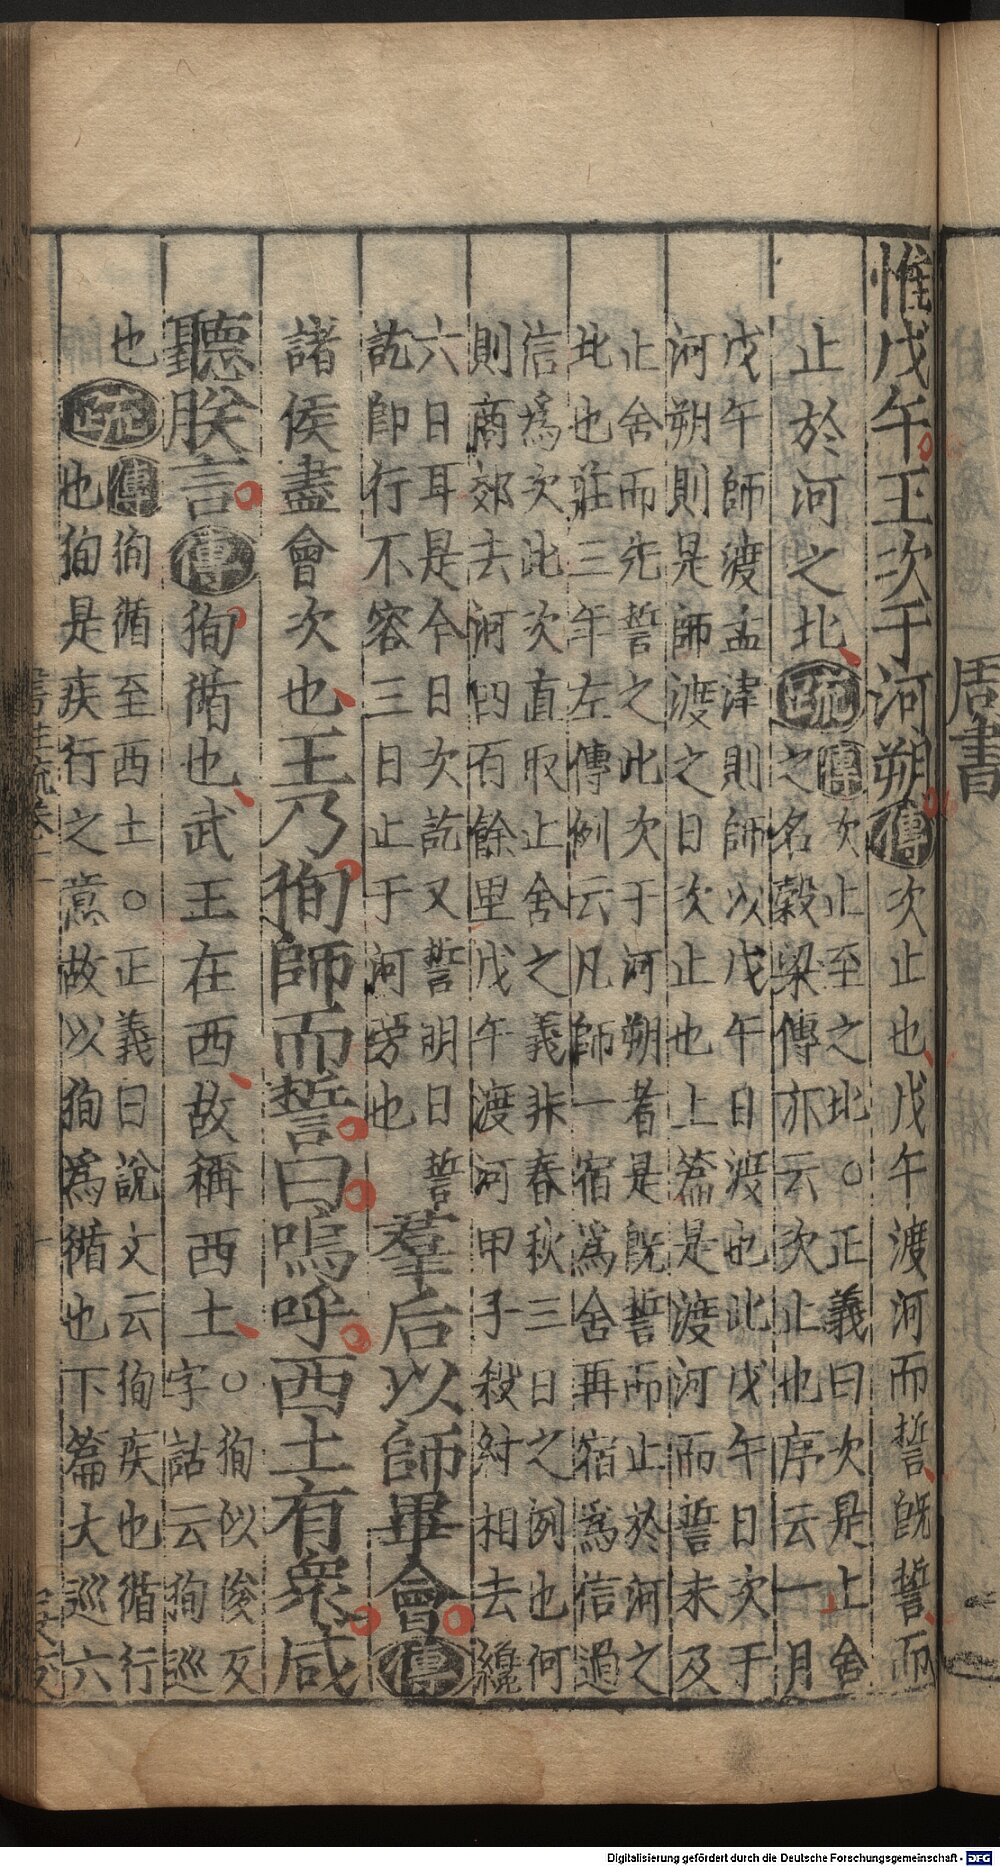 惟戊午王次于河朔傳次止也戊午渡河而誓旣誓而
止於河之北疏
傳次止至之北○正義曰次是止舍
之名榖梁傳亦云次止也序云一月
戊午師渡孟津則師以戊午日渡也此戊午日次于
河朔則是師渡之日次止也上篇是渡河而誓未及
止舍而先誓之此次于河朔者是旣誓而止於河之
北也莊三年左傳例云凡師一宿爲舍再宿爲信過
信爲次此次直取止舍之義非春秋三日之例也何
則商郊去河四百餘里戊午渡河甲子殺紂相去纔
六日耳是今日次訖又誓明日誓
訖卽行不容三日止于河旁也
羣后以師畢會傳
諸侯盡會次也王乃徇師而誓曰嗚呼西土有衆咸
聽朕言傳徇循也武王在西故稱西土○
徇似俊反
字詁云徇巡
也疏
傳徇循至西土○正義曰說文云徇疾也循行
也徇是疾行之意故以徇爲循也下篇大巡六
周書
Digitalisierung gefördert durch die Deutsche Forschungsgemeinschaft - DFG